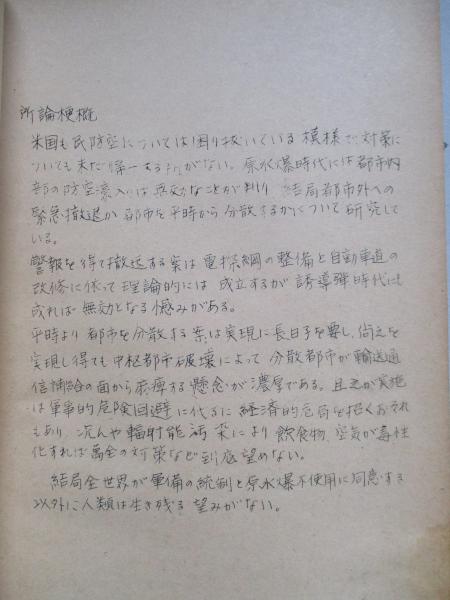 所論梗概
米国も民防空については困り抜いている模様で、対策に
ついても未だ帰一する所がない。原水爆時代には都市内
部の防空壕 は無効なことが判り 結局都市外への
緊急撤退か 都市を平時から分散するかについて研究して
いる。
警報を得て撤退する案は電探網の整備と自動車道の
改修に依って理論的には成立するが誘導弾時代にも
成れば無効となる憾みがある。
平時より都市を分散する案は実現に長日子を要し、尚之を
実現し得ても中枢都市破壊によって分散都市が輸送通
信 の面から麻痺する懸念が濃厚である。且之が実施
は軍事的危険回避に代るに経済的危局を招くおそれ
もあり 況んや輻射能汚染により飲食物、空気が毒性
化すれば萬全の対策など到底望めない。
結局全世界が軍備の統制と原水爆不使用に同意する
以外に人類は生き残る望みがない。